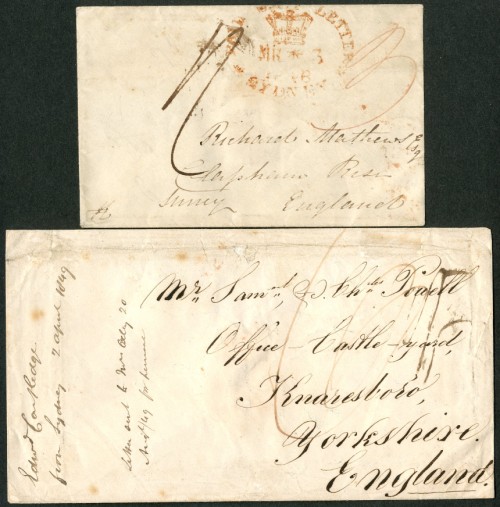 LETTER
MR 3
SYDNEY
Richard Mathews Esq
Clapham Rise
Surrey England
Mr. Saml. & Chles Powell
Office - Castle - yard,
Knaresboro,
Yorkshire.
England.
Edwd
from Sydney 2 April 1849
Letter sent to Mr 20
49